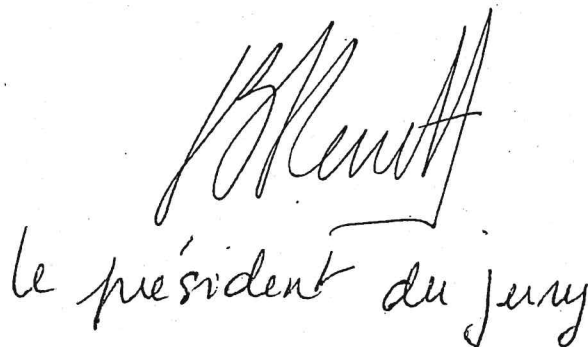 le président du jury